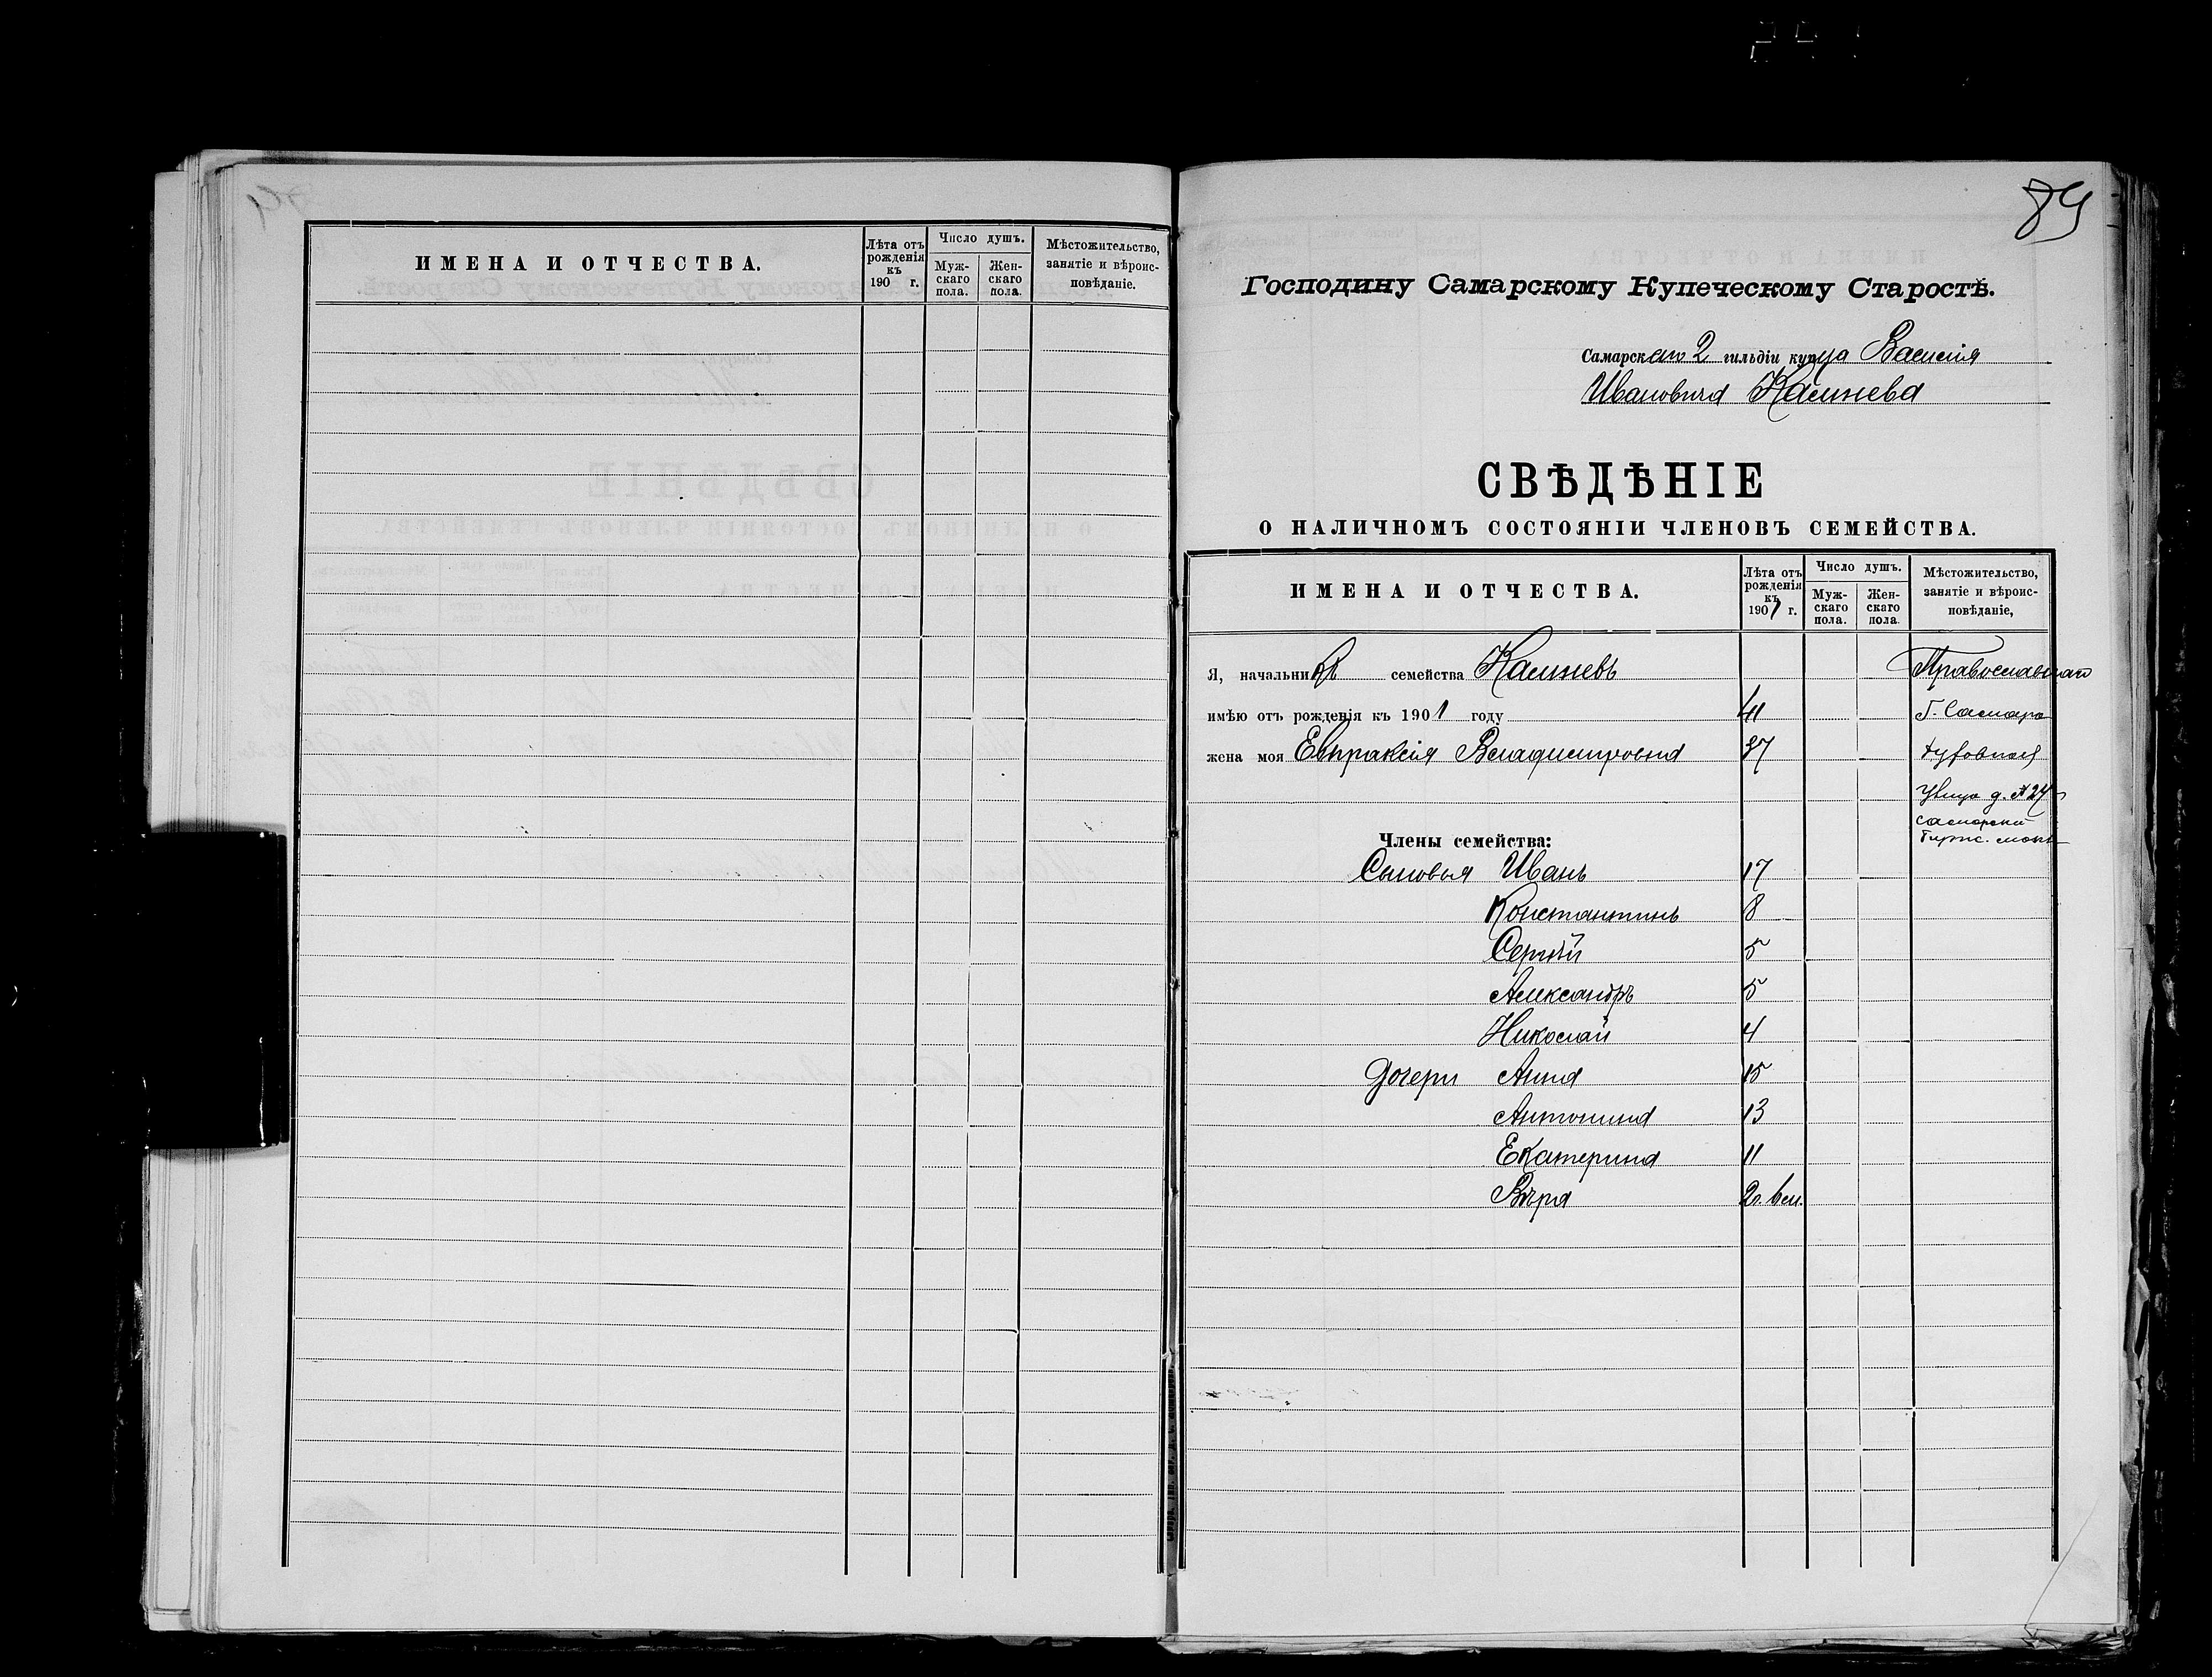 ИМЕНА И ОТЧЕСТВА.
Лѣта отъ рожденія къ 190 г.
Число душъ.
Мужскаго пола.
Женскаго пола.
Мѣстожительство, занятіе и вѣроисповѣданіе.
89
Господину Самарскому Купеческому Старостѣ.
Самарскаго 2 гильдіи купца Василія
Ивановича
СВѢДѢНІЕ
О НАЛИЧНОМЪ СОСТОЯНІИ ЧЛЕНОВЪ СЕМЕЙСТВА.
ИМЕНА И ОТЧЕСТВА.
Лѣта отъ рожденія къ 1907 г.
Число душъ.
Мужскаго пола.
Женскаго пола.
Мѣстожительство, занятіе и вѣроисповѣданіе,
Я, начальникъ семейства Православнаго
имѣю отъ рожденія къ 190 году 41 Г. Самара
жена моя Евпраксія Владимировна 37
улица д. № 27
Члены семейства:
Сыновья Иванъ 17
Константинъ 8
Сергѣй 5
Александръ 5
Николай 4
Дочери Анна 15
Антонина 13
Екатерина 11
Вѣра 2